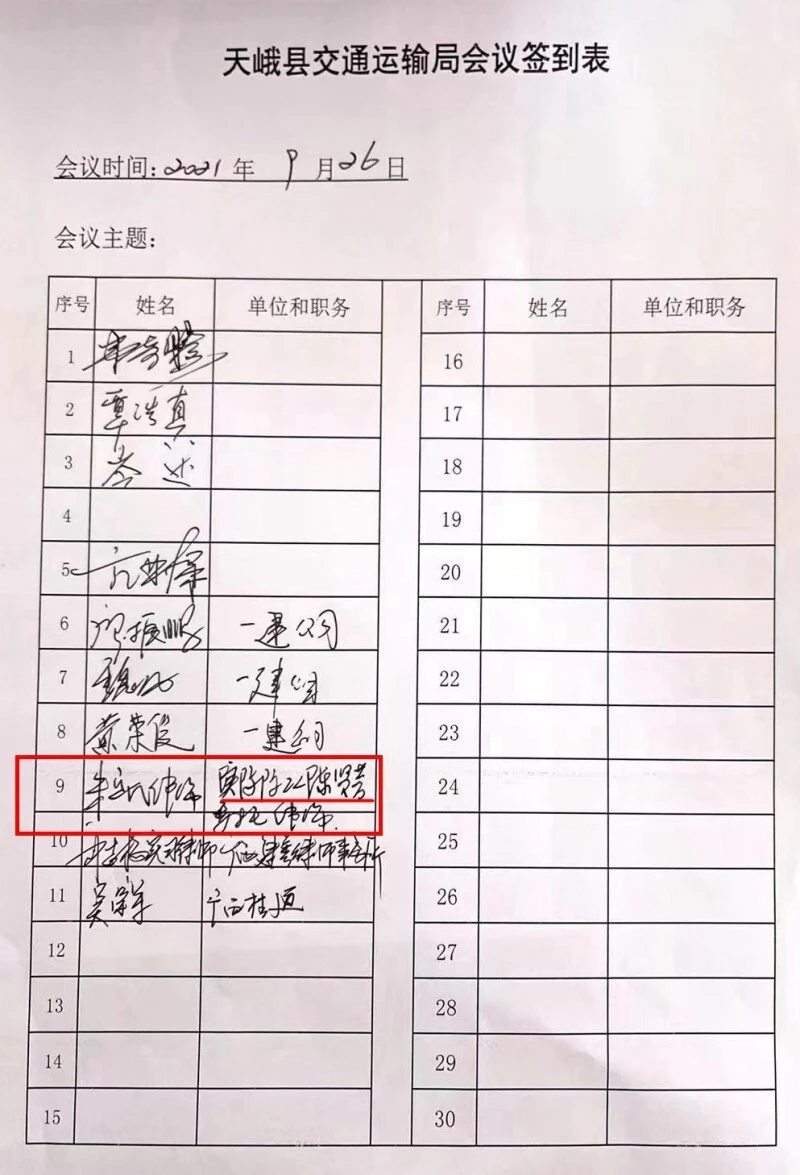 天峨县交通运输局会议签到表
会议时间：2021年9月26日
会议主题：
序号 姓名 单位和职务 序号 姓名 单位和职务
1 16
2 覃浩真 17
3 18
4 19
5 20
6 一建公司 21
7 一建公司 22
8 黄荣俊 一建公司 23
9 律师 实际施工陈贤 24
委托律师
10 实习律师 律师事务所 25
11 吴 广西桂通 26
12 27
13 28
14 29
15 30